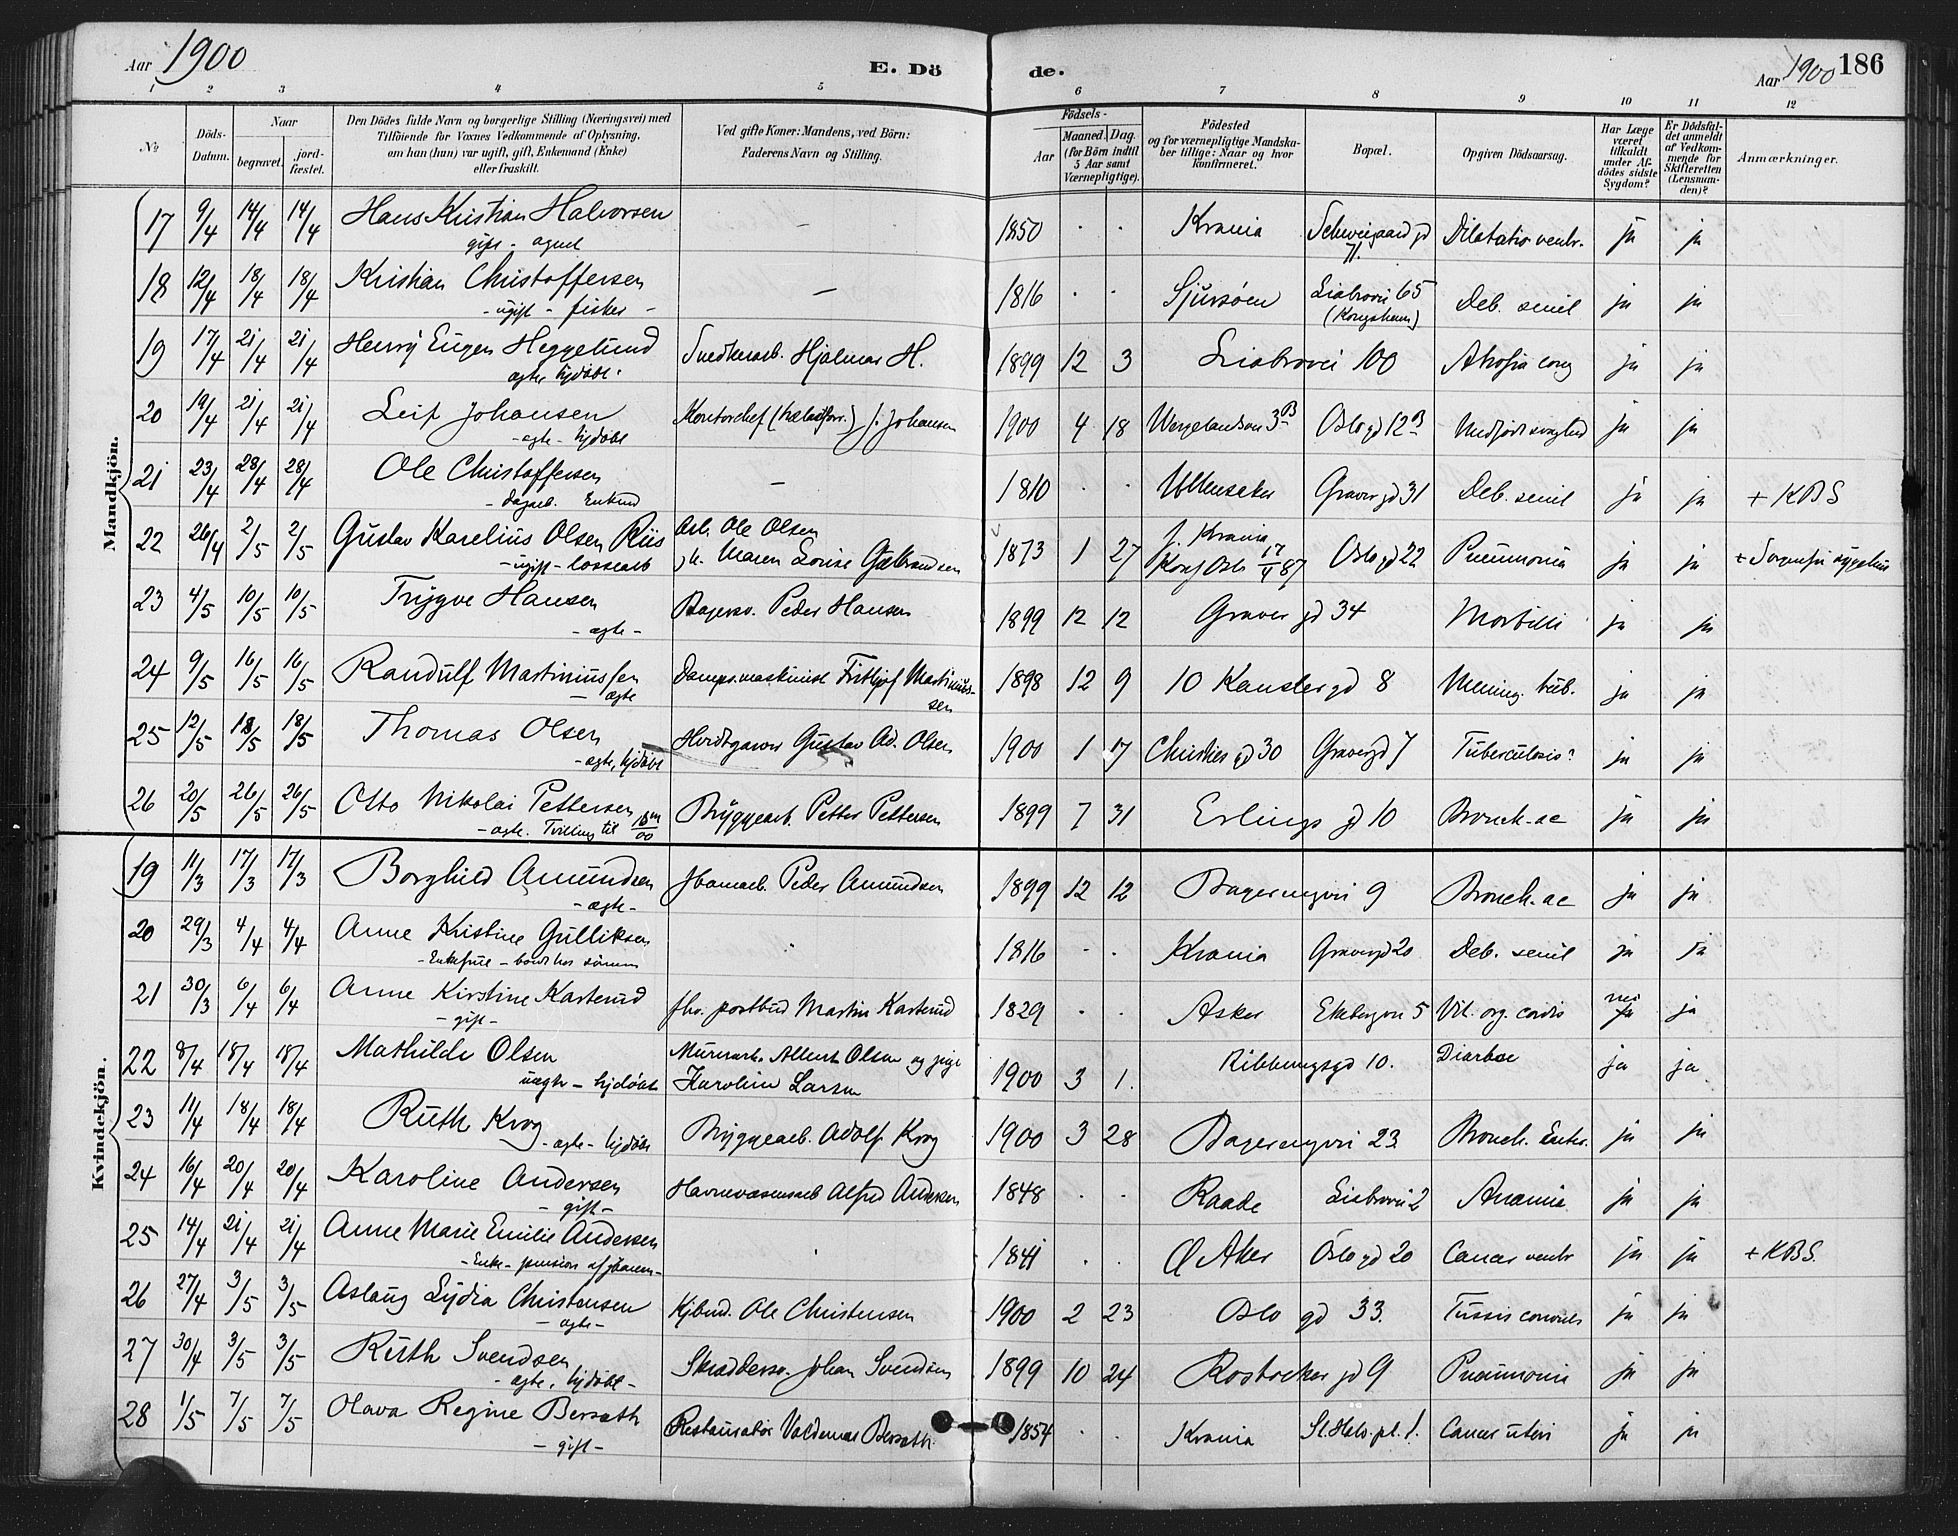 Aar 1900
E. Dö
de.
Aar 1900 186
1 2 3 4 5 6 7 8 9 10 11 12
No
Döds-Datum.
Naar
begravet.
jord-fæstet.
Den Dödes fulde Navn og borgerlige Stilling (Næringsvei) med
Tilföiende for Voxnes Vedkommende af Oplysning,
om han (hun) var ugift, gift, Enkemand (Enke)
eller fraskilt.
Ved gifte Koner: Mandens, ved Börn:
Faderens Navn og Stilling.
Födsels-
Aar
Maaned. Dag.
(for Börn indtil
5 Aar samt
Værnepligtige).
Födested
og for værnepligtige Mandska-
ber tillige: Naar og hvor
konfirmeret.
Bopæl.
Opgiven Dödsaarsag.
Har Læge
været
tilkaldt
under Af-
dödes sidste
Sygdom?
Er Dödsfal-
det anmeldt
af Vedkom-
mende for
Skifteretten
(Lensman-
den)?
Anmærkninger.
Mandkjön.
17 9/4 14/4 14/4 Hans Kristian Halvorsen — 1850 · · Krania Schweigaard gd 71. Dilatatio ventr. ja ja
gift -
18 12/4 18/4 18/4 Kristian Christoffersen — 1816 · · Sjursøen Liabrovei 65 (Kongshavn) Deb. senil ja ja
- ugift - fisker -
19 17/4 21/4 21/4 Henry Eugen Heggelund Snedkerarb. Hjalmar H. 1899 12 3 Liabrovei 100 Atrofia cong ja ja
ægte, hjdøbt.
20 19/4 21/4 21/4 Leif Johansen Kontorchef J. Johansen 1900 4 18 3B Oslo gd 12B Medfødt svaghed ja ja
- ægte - hjdøbt
21 23/4 28/4 28/4 Ole Christoffersen — 1810 · · Ullensaker Graver gd 31 Deb. senil ja ja + KBS
- dagarb. Enkmd
22 26/4 2/5 2/5 Gustav Karelius Olsen Riis Arb. Ole Olsen 1873 1 27 f. Krania Oslo gd 22 Pneumonia ja ja
- ugift - løssearb Maren Lovise Gulbrandsen Konf Oslo 17/4 87
23 4/5 10/5 10/5 Trygve Hansen Bagersv. Peder Hansen 1899 12 12 Graver gd 34 Morbilli ja ja
- ægte -
24 9/5 16/5 16/5 Randulf Martiniussen Damps.maskinist Frithjof Martinius-sen 1898 12 9 10 Kansler gd 8 Mening. tub. ja ja
- ægte
25 12/5 18/5 18/5 Thomas Olsen Hvidtgarver Gustav Ad. Olsen 1900 1 17 Christies gd 30 Gravergd 7 Tuberculosis? ja ja
- ægte, hjdøbt
26 20/5 26/5 26/5 Otto Nikolai Pettersen Bryggearb. Petter Pettersen 1899 7 31 Erlings gd 10 Bronch. ac ja ja
- ægte. Tvilling til
Kvindekjön.
19 11/3 17/3 17/3 Borghild Amundsen Peder Amundsen 1899 12 12 9 Bronch. ac ja ja
- ægte -
20 29/3 4/4 4/4 Anne Kristine Gulliksen 1816 · · Krania Gravergd 20 Deb. senil ja ja
- Enkefrue - boede hos sønnen
21 30/3 6/4 6/4 Anne Kirstine Karterud fhv. postbud Martin Karterud 1829 · · Asker Ekebergvei 5 Vit. org. cordis nei ja ja
- gift -
22 8/4 18/4 18/4 Mathilde Olsen Murerarb. Albert Olsen og pige 1900 3 1. Ribbungsgd 10. Diarhoe ja ja
uægte - hjdøbt Karoline Larsen
23 11/4 18/4 18/4 Ruth Krog Bryggearb. Adolf Krog 1900 3 28 23 Bronch. Enter. ja ja
- ægte - hjdøbt
24 16/4 20/4 20/4 Karoline Andersen Havnevæsensarb Alfred Andersen 1848 · · Raade Liabrovei 2 Anæmia ja ja
- gift -
25 14/4 21/4 21/4 Anne Marie Emilie Andersen 1841 · · Ø Aker Oslo gd 20 Cancer ventr ja ja + KBS.
- Enke - pension af
26 27/4 3/5 3/5 Aslaug Lydia Christensen Kjbud. Ole Christensen 1900 2 23 Oslo gd 33. Tussis convuls ja ja
- ægte -
27 30/4 3/5 3/5 Ruth Svendsen Skrædersv. Johan Svendsen 1899 10 24 Rostocker gd 9 Pneumonia ja ja
- ægte, hjdøbt -
28 1/5 7/5 7/5 Olava Regine Berseth Restauratør Valdemar Berseth 1854 · · Krania St. Halv. pl. 1. Cancer uteri ja ja
- gift -